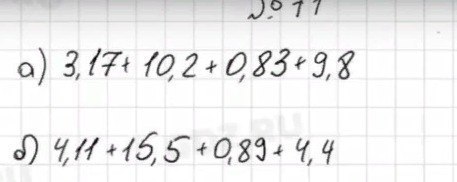 № 11
а) 3,17+ 10,2+0,83+9,8
б) 4,11+15,5+0,89+4,4